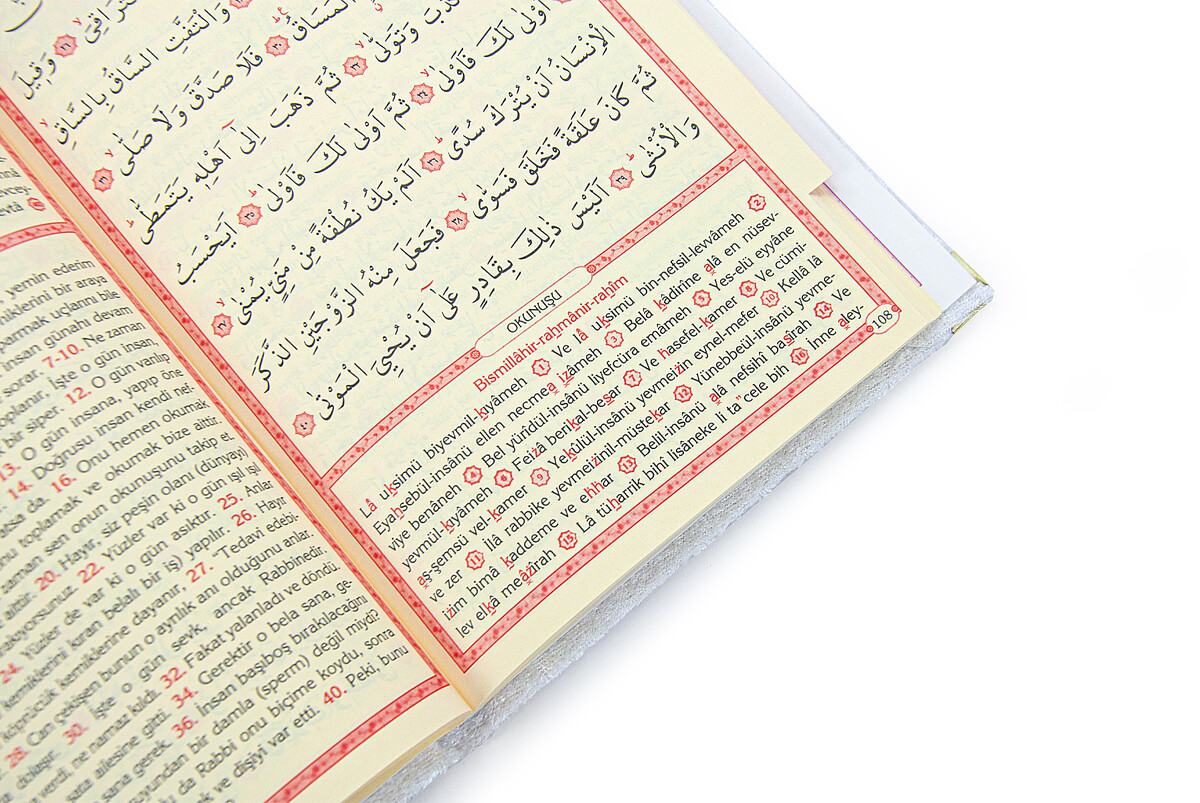 yemin ederim
niklerini bir araya
parmak uçlarını bile
insan günahı devam
sorar. 7-10. Ne zaman
toplanır, İşte o gün insan,
bir siper. 12. O gün varılıp
13. O gün insana, yapıp öne
14. Doğrusu insan kendi nef-
da. 16. Onu hemen okumak
toplamak ve okumak bize aittir.
zaman sen onun okunuşunu takip et.
aittir. 20. Hayır, siz peşin olanı (dünyayı)
22. Yüzler var ki o gün ışıl ışıl
24. Yüzler de var ki o gün asıktır. 25. Anlar
kemiklerini kıran belalı bir iş) yapılır. 26. Hayır
köprücük kemiklerine dayanır, 27. "Tedavi edebi-
28. Can çekişen bunun o ayrılık anı olduğunu anlar.
dolaşır. 30. İşte o gün sevk, ancak Rabbinedir.
ne namaz kıldı. 32. Fakat yalanladı ve döndü.
ailesine gitti. 34. Gerektir o bela sana, ge-
sana gerek. 36. İnsan başıboş bırakılacağını
bir damla (sperm) değil miydi?
da Rabbi onu biçime koydu, sonra
ve dişiyi var etti. 40. Peki, bunu
وَقٖيلَ
وَالْتَفَّتِ السَّاقُ بِالسَّاقِ
الْمَسَاقُ ﴿٣٠﴾ فَلَا صَدَّقَ وَلَا صَلّٰى ﴿٣١﴾
وَتَوَلّٰى ﴿٣٢﴾ ثُمَّ ذَهَبَ اِلٰٓى اَهْلِهٖ يَتَمَطّٰى
اَوْلٰى لَكَ فَاَوْلٰى ﴿٣٤﴾ ثُمَّ اَوْلٰى لَكَ فَاَوْلٰى ﴿٣٥﴾ اَيَحْسَبُ
الْاِنْسَانُ اَنْ يُتْرَكَ سُدًى ﴿٣٦﴾ اَلَمْ يَكُ نُطْفَةً مِنْ مَنِيٍّ يُمْنٰى ﴿٣٧﴾
ثُمَّ كَانَ عَلَقَةً فَخَلَقَ فَسَوّٰى ﴿٣٨﴾ فَجَعَلَ مِنْهُ الزَّوْجَيْنِ الذَّكَرَ
وَالْاُنْثٰى ﴿٣٩﴾ اَلَيْسَ ذٰلِكَ بِقَادِرٍ عَلٰٓى اَنْ يُحْيِيَ الْمَوْتٰى ﴿٤٠﴾
OKUNUŞU
Bismillâhir-rahmânir-rahîm
Lâ uksimü biyevmil-kıyâmeh 1 Ve lâ uksimü bin-nefsil-levvâmeh 2
Eyahsebül-insânü ellen necmea ızâmeh 3 Belâ kâdirîne alâ en nüsev-
viye benâneh 4 Bel yürîdül-insânü liyefcüra emâmeh 5 Yes-elü eyyâne
yevmül-kıyâmeh 6 Feizâ berikal-besar 7 Ve hasefel-kamer 8 Ve cümi-
aş-şemsü vel-kamer 9 Yekûlül-insânü yevmeizin eynel-mefer 10 Kellâ lâ
ve zer 11 İlâ rabbike yevmeizinil-müstekar 12 Yünebbeül-insânü yevme-
izim bimâ kaddeme ve ehhar 13 Belil-insânü alâ nefsihî basîrah 14 Ve
lev elkâ meâzîrah 15 Lâ tüharrik bihî lisâneke li ta''cele bih 16 İnne aley-
108